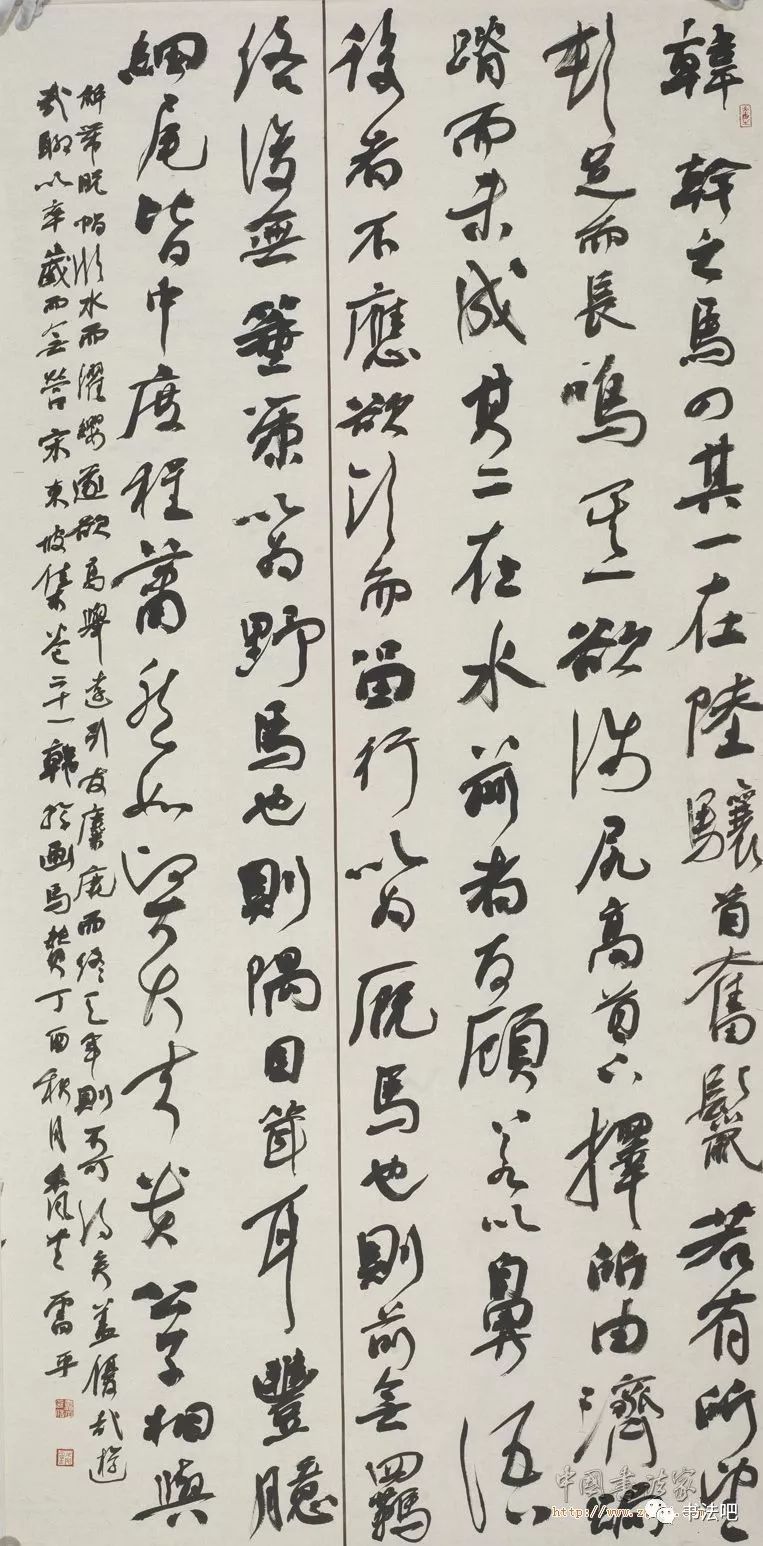 韓幹之馬四其一在陸驤首奮鬣若有所望
頓足而長鳴其一欲涉尻高首下擇所由濟跼
蹐而未成其二在水前者反顧若以鼻語
後者不應欲飲而留行以為廄馬也則前無羈
絡後無箠策以為野馬也則隅目聳耳豐臆
細尾皆中度程蕭然如賢大夫貴公子相與
解帶脫帽臨水而濯纓遂欲高舉遠引友麋鹿而終天年則不可得矣蓋優哉游
哉聊以卒歲而無營宋東坡集卷二十一韓幹畫馬贊丁酉秋月雷平
中國書法家
http://www.z
书法吧